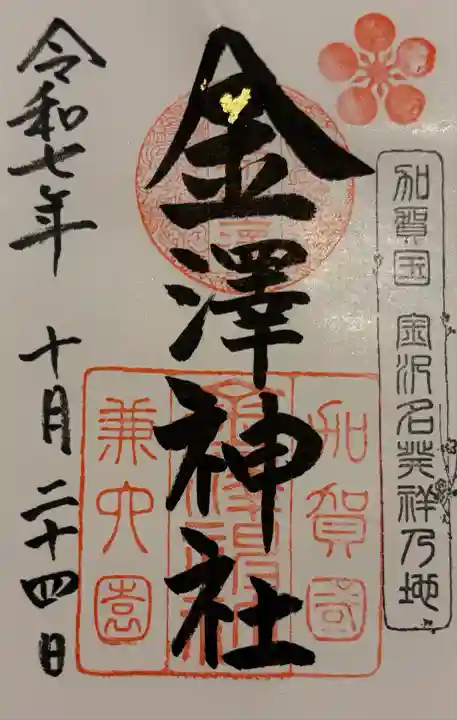 加賀国 金沢名発祥乃地
金澤神社
加賀國
金澤神社
兼六園
令和七年 十月二十四日